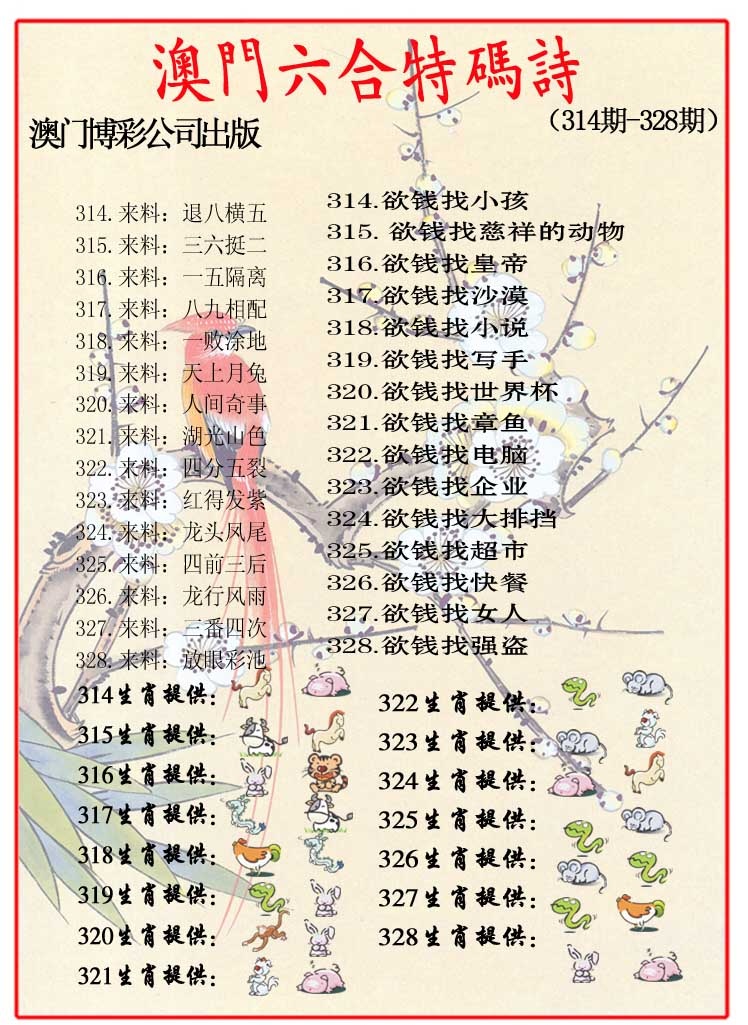 澳門六合特碼詩
澳门博彩公司出版
（314期-328期）
314.来料：退八横五
315.来料：三六挺二
316.来料：一五隔离
317.来料：八九相配
318.来料：一败涂地
319.来料：天上月兔
320.来料：人间奇事
321.来料：湖光山色
322.来料：四分五裂
323.来料：红得发紫
324.来料：龙头风尾
325.来料：四前三后
326.来料：龙行风雨
327.来料：三番四次
328.来料：放眼彩池
314.欲钱找小孩
315. 欲钱找慈祥的动物
316.欲钱找皇帝
317.欲钱找沙漠
318.欲钱找小说
319.欲钱找写手
320.欲钱找世界杯
321.欲钱找章鱼
322.欲钱找电脑
323.欲钱找企业
324.欲钱找大排挡
325.欲钱找超市
326.欲钱找快餐
327.欲钱找女人
328.欲钱找强盗
314生肖提供：
315生肖提供：
316生肖提供：
317生肖提供：
318生肖提供：
319生肖提供：
320生肖提供：
321生肖提供：
322生肖提供：
323生肖提供：
324生肖提供：
325生肖提供：
326生肖提供：
327生肖提供：
328生肖提供：